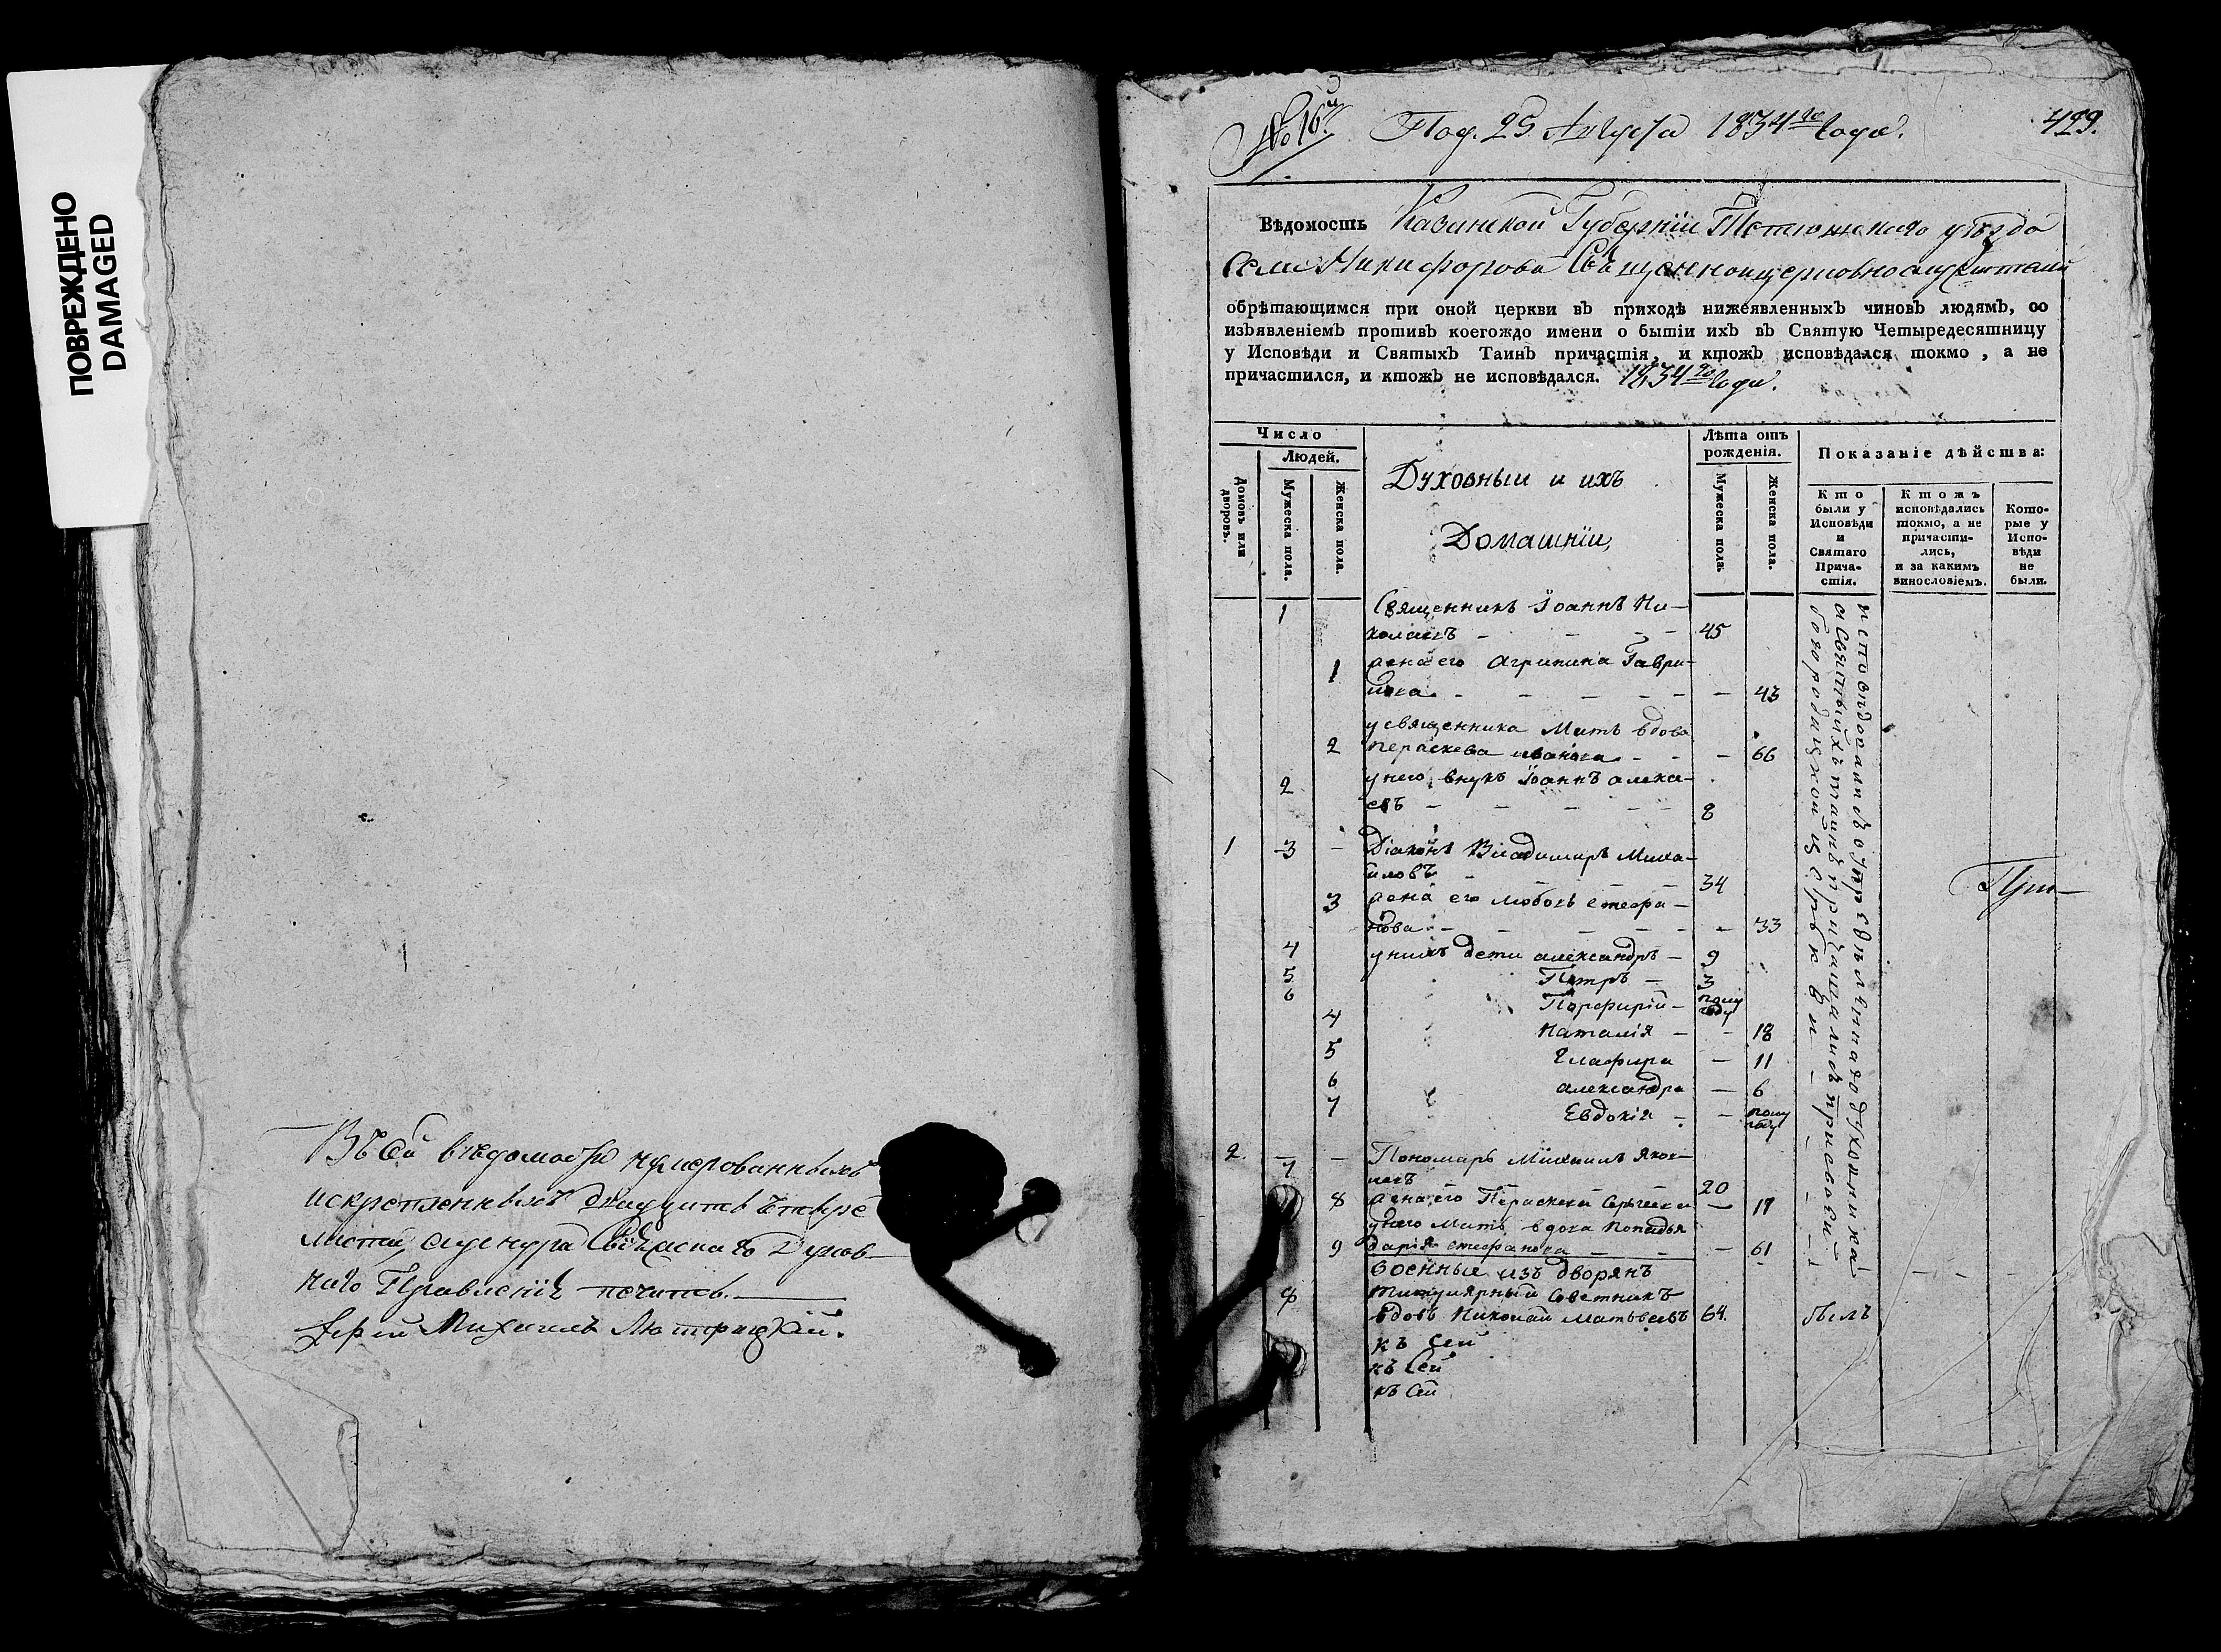 ПОВРЕЖДЕНО
DAMAGED
Въ сей ведомости нумерованныхъ
искрепленныхъ дватцать четыре
листа,
наго Правленія печать.
Іерей Михаилъ
№ 16й
Под. 25 Августа 1834го года.
429.
Вѣдомость Казанской Губерніи Тетюшскаго уѣзда
Села Никифорова Священноцерковнослужителей
обрѣтающимся при оной церкви въ приходѣ нижеявленныхъ чиновъ людямъ, со
изъявленіемъ противъ коегождо имени о бытіи ихъ въ Святую Четыредесятницу
у Исповѣди и Святыхъ Таинъ причастія, и ктожъ исповѣдался токмо, а не
причастился, и ктожъ не исповѣдался. 1834го года.
Число
Людей.
Домовъ или дворовъ.
Мужеска пола.
Женска пола.
Духовныи и ихъ
Домашніи,
Лѣта отъ рожденія.
Мужеска пола.
Женска пола.
Показаніе дѣйства:
Кто были у Исповѣди и Святаго Причастія.
Ктожъ исповѣдались токмо, а не причастились, и за какимъ винословіемъ.
Которые у Исповѣди не были.
1 Священникъ Іоаннъ Ни-
колаевъ - - - - 45
1 жена его Агрипина Гаври-
лова - - - - - - 43
у священника Мать вдова
2 Пераскева иванова - - - 66
2 у него внукъ Іоаннъ алекс-
евъ - - - - - 8
1 3 - Діаконъ Владимиръ Миха-
иловъ - - - - - 34
3 жена его Любовь стефа-
нова - - - - - - 33
4 у нихъ дети александръ - 9
5 Петръ - 3
6 Порфирій - полу году
4 Наталія - - 18
5 Глафира - 11
6 александра - 6
7 Евдокія - - полу году
2. 7 - Пономарь Михаилъ Яков-
левъ - - - 20
8 жена его Пераскева Сергеева - 19
у него Мать вдова попадья
9 дарія стефанова - - - 61
военныи изъ дворянъ
8 титулярный советникъ
вдовъ Николай Матвеевъ 64. былъ
къ сей
къ сей
къ сей
исповѣдоались у опредѣленнаго духовника
и Святыхъ таинъ причащались въ
При-